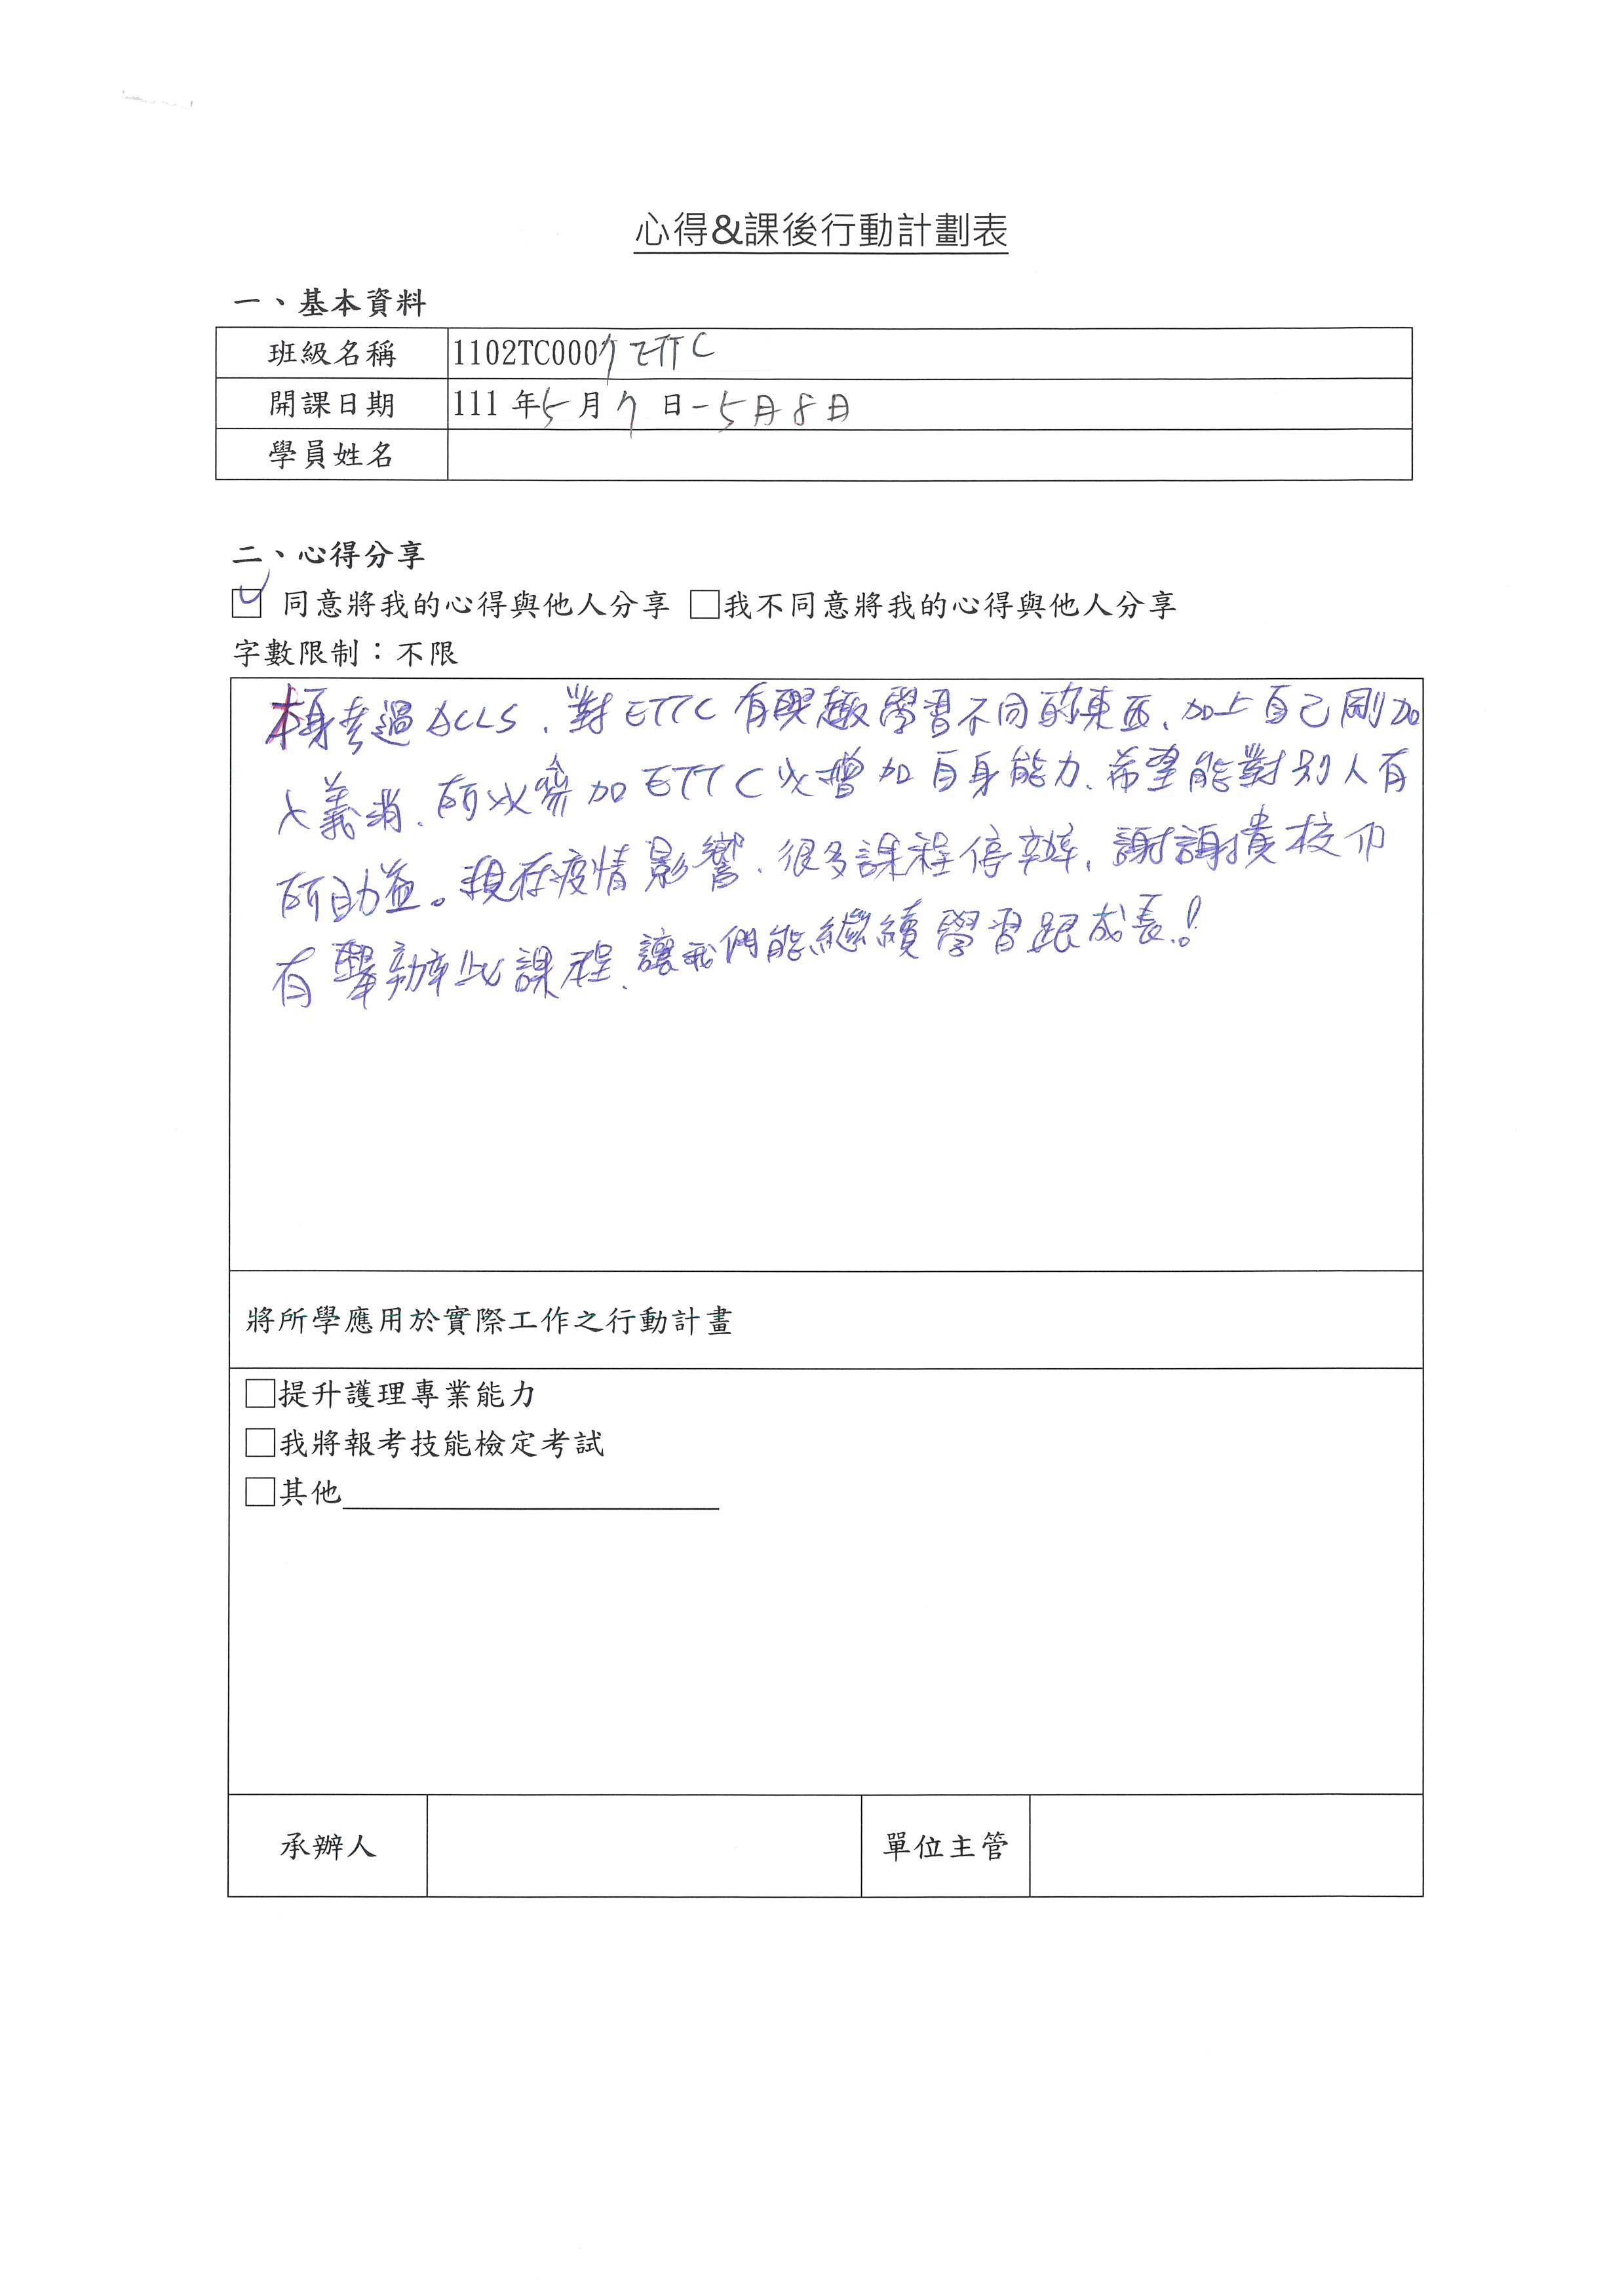 心得&課後行動計劃表
一、基本資料
班級名稱 1102TC0007 ETTC
開課日期 111 年5月7日-5月8日
學員姓名
二、心得分享
☑ 同意將我的心得與他人分享 □我不同意將我的心得與他人分享
字數限制：不限
本身考過ACLS、對ETTC有興趣學習不同的東西、加上自己剛加
入義消、所以參加ETTC以增加自身能力、希望能對別人有
所助益。現在疫情影響、很多課程停辦、謝謝貴校仍
有舉辦此課程、讓我們能繼續學習跟成長!
將所學應用於實際工作之行動計畫
□提升護理專業能力
□我將報考技能檢定考試
□其他
承辦人 單位主管